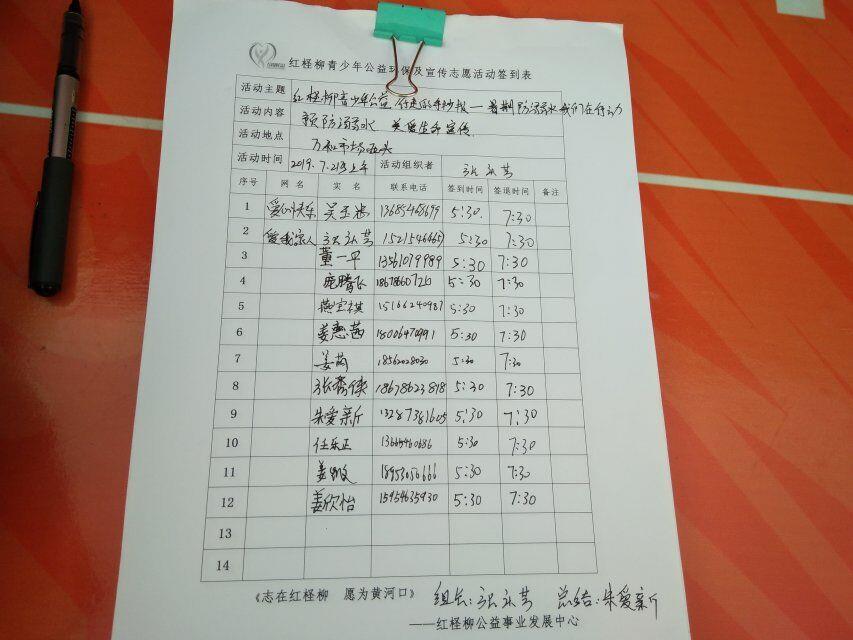 红柽柳青少年公益环保及宣传志愿活动签到表
活动主题 红柽柳青少年公益 一暑期防溺水我们在行动
活动内容 预防溺水 关爱生命宣传
活动地点 万和市场西头
活动时间 2019.7.21日上午 活动组织者 张永芳
序号 网名 实名 联系电话 签到时间 签退时间 备注
1 爱心快乐 13685468699 5:30. 7:30
2 爱我家人 张永芳 15215464657 5:30 7:30
3 董一平 13561079989 5:30 7:30
4 庞腾飞 5:30 7:30
5 燕宝祺 15166240987 5:30 7:30
6 姜惠茜 18006470991 5:30 7:30
7 姜芮 18562028030 5:30 7:30
8 张秀侠 18678623898 5:30 7:30
9 朱爱新 13287381605 5:30 7:30
10 任乐正 13665460686 5:30 7:30
11 姜 18953056666 5:30 7:30
12 姜欣怡 15954635930 5:30 7:30
13
14
《志在红柽柳 愿为黄河口》 组长:张永芳 总结:朱爱新
——红柽柳公益事业发展中心